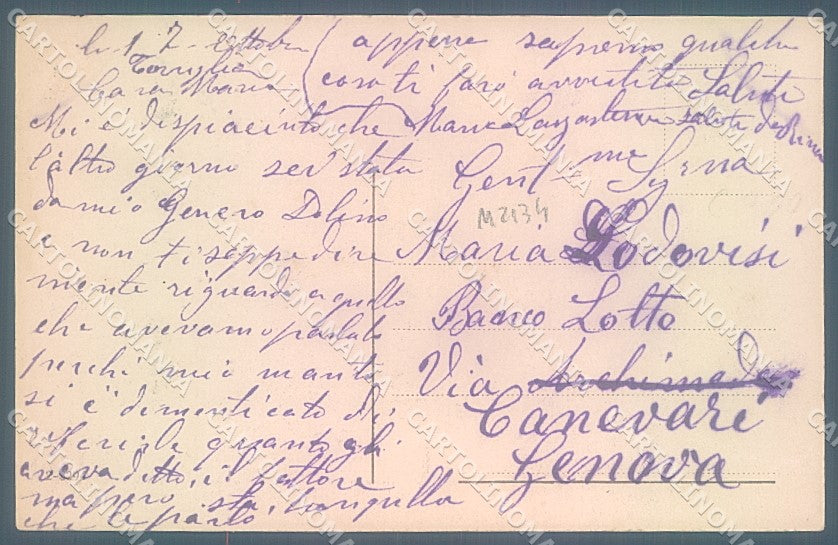 li 17 Ottobre
Torriglia
Cara Maria
Mi è dispiacinto che
l'altro giorno sei stata
da mio Genero Dolfino
e non ti sappe dire
mente riguardo a quello
che avevamo parlato
perche mio marito
si è dimenticato di
riferirle quanto gli
aveva detto, il fattore
ma pero sta tranquilla
che le parlo,
appena sapremo qualche
cosa ti farò avvertita Salute
Maria
Gent me Sgrna
M2134
Maria Lodovisi
Banco Lotto
Via Archimede
Canevari
Genova
CARTOLINOMANIA